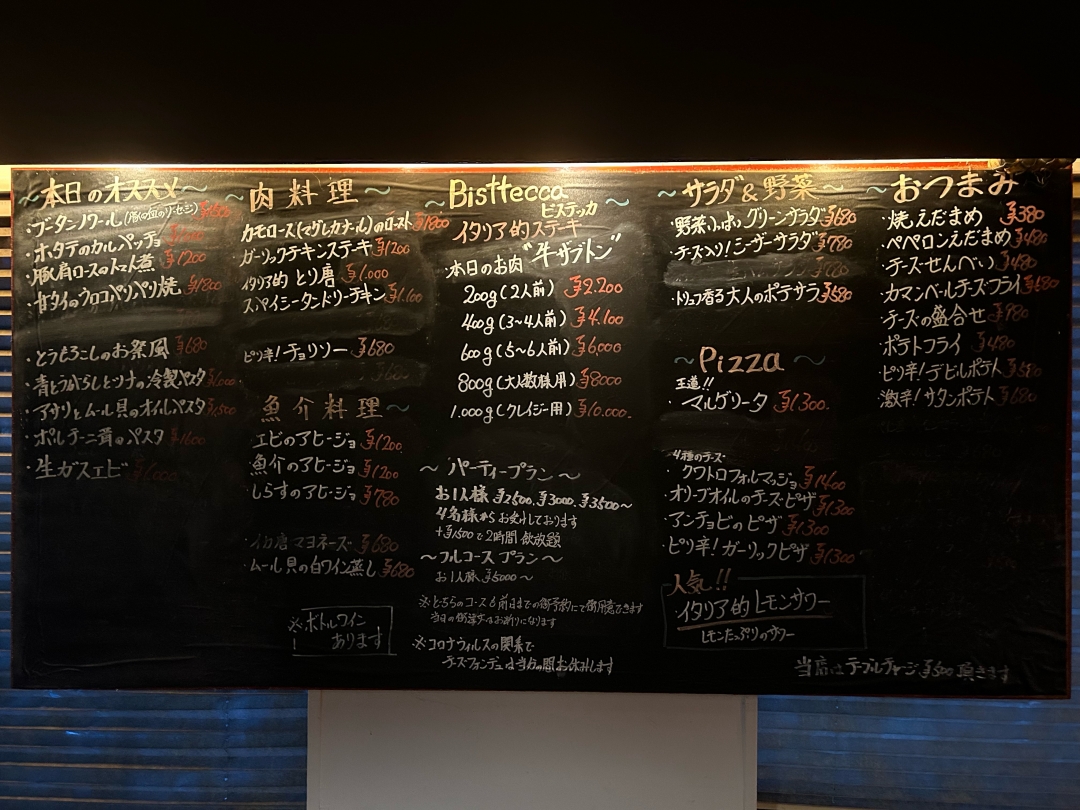 〜本日のオススメ〜
・ブータンノワール(豚の血のソーセージ)
・ホタテのカルパッチョ
・豚肩ロースのトマト煮 ¥1200
・甘ダイのウロコパリパリ焼 ¥1800
・とうもろこしのお祭風 ¥680
・青とうがらしとツナの冷製パスタ
・アサリとムール貝のオイルパスタ ¥1,500
・ポルチーニ茸のパスタ ¥1600
・生ガスエビ
〜肉料理〜
カモロース(マグレカナール)のロースト ¥1800
・ガーリックチキンステキ ¥1200
・イタリア的 とり唐 ¥1.000
・スパイシータンドリーチキン ¥1.100
・ピリ辛!チョリソー ¥680
魚介料理〜
・エビのアヒージョ ¥1200
・魚介のアヒージョ ¥1200
・しらすのアヒージョ ¥780
・イカ唐マヨネーズ ¥680
・ムール貝の白ワイン蒸し ¥680
※ボトルワイン
あります
〜Bisttecca〜
ビステッカ
イタリア的ステーキ
・本日のお肉 "牛ザブトン"
200g(2人前) ¥2.200
400g(3〜4人前) ¥4.100
600g(5〜6人前) ¥6,000
800g(大人数様用) ¥8000
1.000g(クレイジー用) ¥10.000.
〜パーティープラン〜
お1人様 ¥2500. ¥3000. ¥3500〜
4名様からお受けしております
+¥1,500で2時間飲放題
〜フルコースプラン〜
お1人様 ¥5000〜
※どちらのコースも前日までの御予約にて御用意できます
当日の御注文はお断りになります
※コロナウィルスの関系で
チーズフォンデュは当分の間お休みします
〜サラダ&野菜〜
・野菜いっぱいグリーンサラダ ¥680
・チーズ入り!シーザーサラダ ¥780
・トリュフ香る大人のポテサラ ¥580
〜Pizza〜
王道!!
・マルゲリータ ¥1300.
4種のチーズ
・クワトロフォルマッジョ ¥1400
・オリーブオイルのチーズピザ ¥1300
・アンチョビのピザ ¥1300
・ピリ辛!ガーリックピザ ¥1300
人気!!
イタリア的レモンサワー
レモンたっぷりのサワー
〜おつまみ〜
・焼えだまめ ¥380
・ペペロンえだまめ ¥480
・チーズせんべい ¥480
・カマンベールチーズフライ ¥580
・チーズの盛合せ ¥780
・ポテトフライ ¥480
・ピリ辛!デビルポテト ¥580
・激辛!サタンポテト ¥680
当店はテーブルチャージ ¥500 頂きます